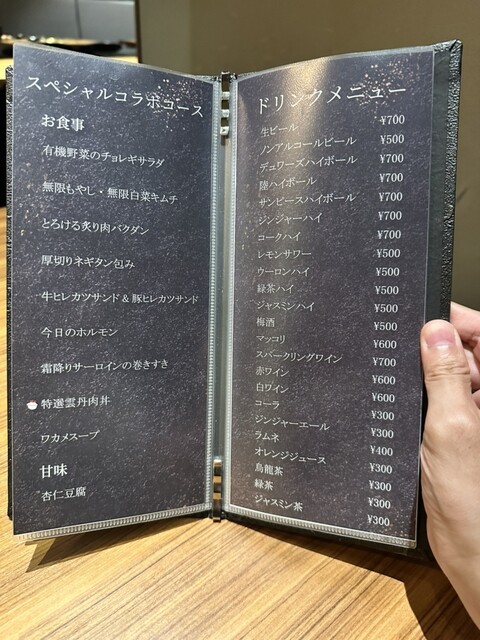 スペシャルコラボコース
お食事
有機野菜のチョレギサラダ
無限もやし・無限白菜キムチ
とろける炙り肉バクダン
厚切りネギタン包み
牛ヒレカツサンド＆豚ヒレカツサンド
今日のホルモン
霜降りサーロインの巻きすき
特選雲丹肉丼
ワカメスープ
甘味
杏仁豆腐
ドリンクメニュー
生ビール ¥700
ノンアルコールビール ¥500
デュワーズハイボール ¥700
陸ハイボール ¥700
サンピースハイボール ¥700
ジンジャーハイ ¥700
コークハイ ¥700
レモンサワー ¥500
ウーロンハイ ¥500
緑茶ハイ ¥500
ジャスミンハイ ¥500
梅酒 ¥500
マッコリ ¥600
スパークリングワイン ¥700
赤ワイン ¥600
白ワイン ¥600
コーラ ¥300
ジンジャーエール ¥300
ラムネ ¥400
オレンジジュース ¥300
烏龍茶 ¥300
緑茶 ¥300
ジャスミン茶 ¥300